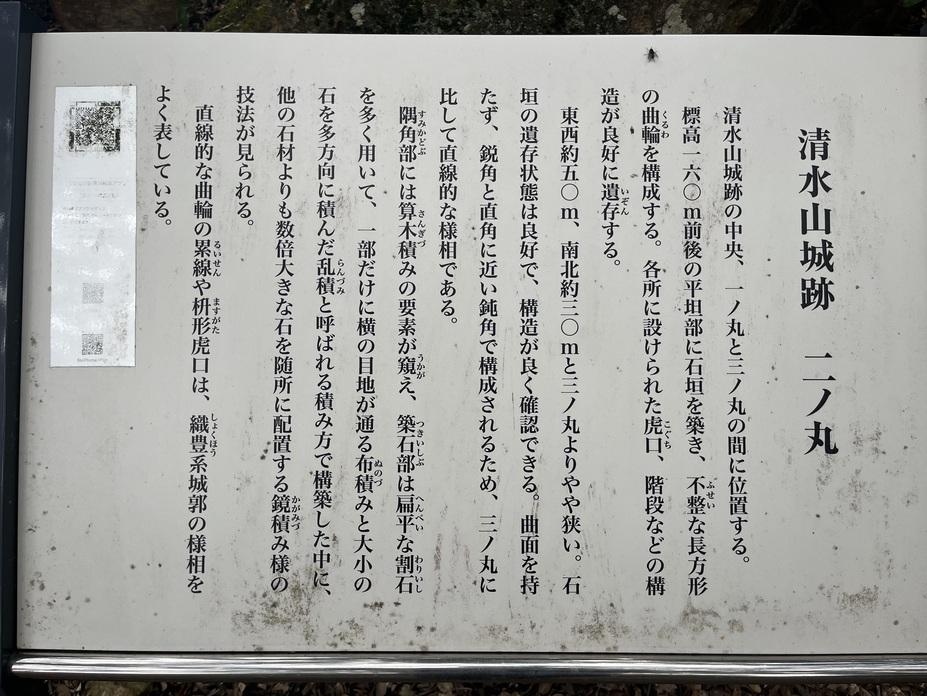 清水山城跡 二ノ丸
清水山城跡の中央、一ノ丸と三ノ丸の間に位置する。
標高一六〇m前後の平坦部に石垣を築き、不整な長方形
の曲輪を構成する。各所に設けられた虎口、階段などの構
造が良好に遺存する。
東西約五〇m、南北約三〇mと三ノ丸よりやや狭い。石
垣の遺存状態は良好で、構造が良く確認できる。曲面を持
たず、鋭角と直角に近い鈍角で構成されるため、三ノ丸に
比して直線的な様相である。
隅角部には算木積みの要素が窺え、築石部は扁平な割石
を多く用いて、一部だけに横の目地が通る布積みと大小の
石を多方向に積んだ乱積と呼ばれる積み方で構築した中に、
他の石材よりも数倍大きな石を随所に配置する鏡積み様の
技法が見られる。
直線的な曲輪の累線や枡形虎口は、織豊系城郭の様相を
よく表している。